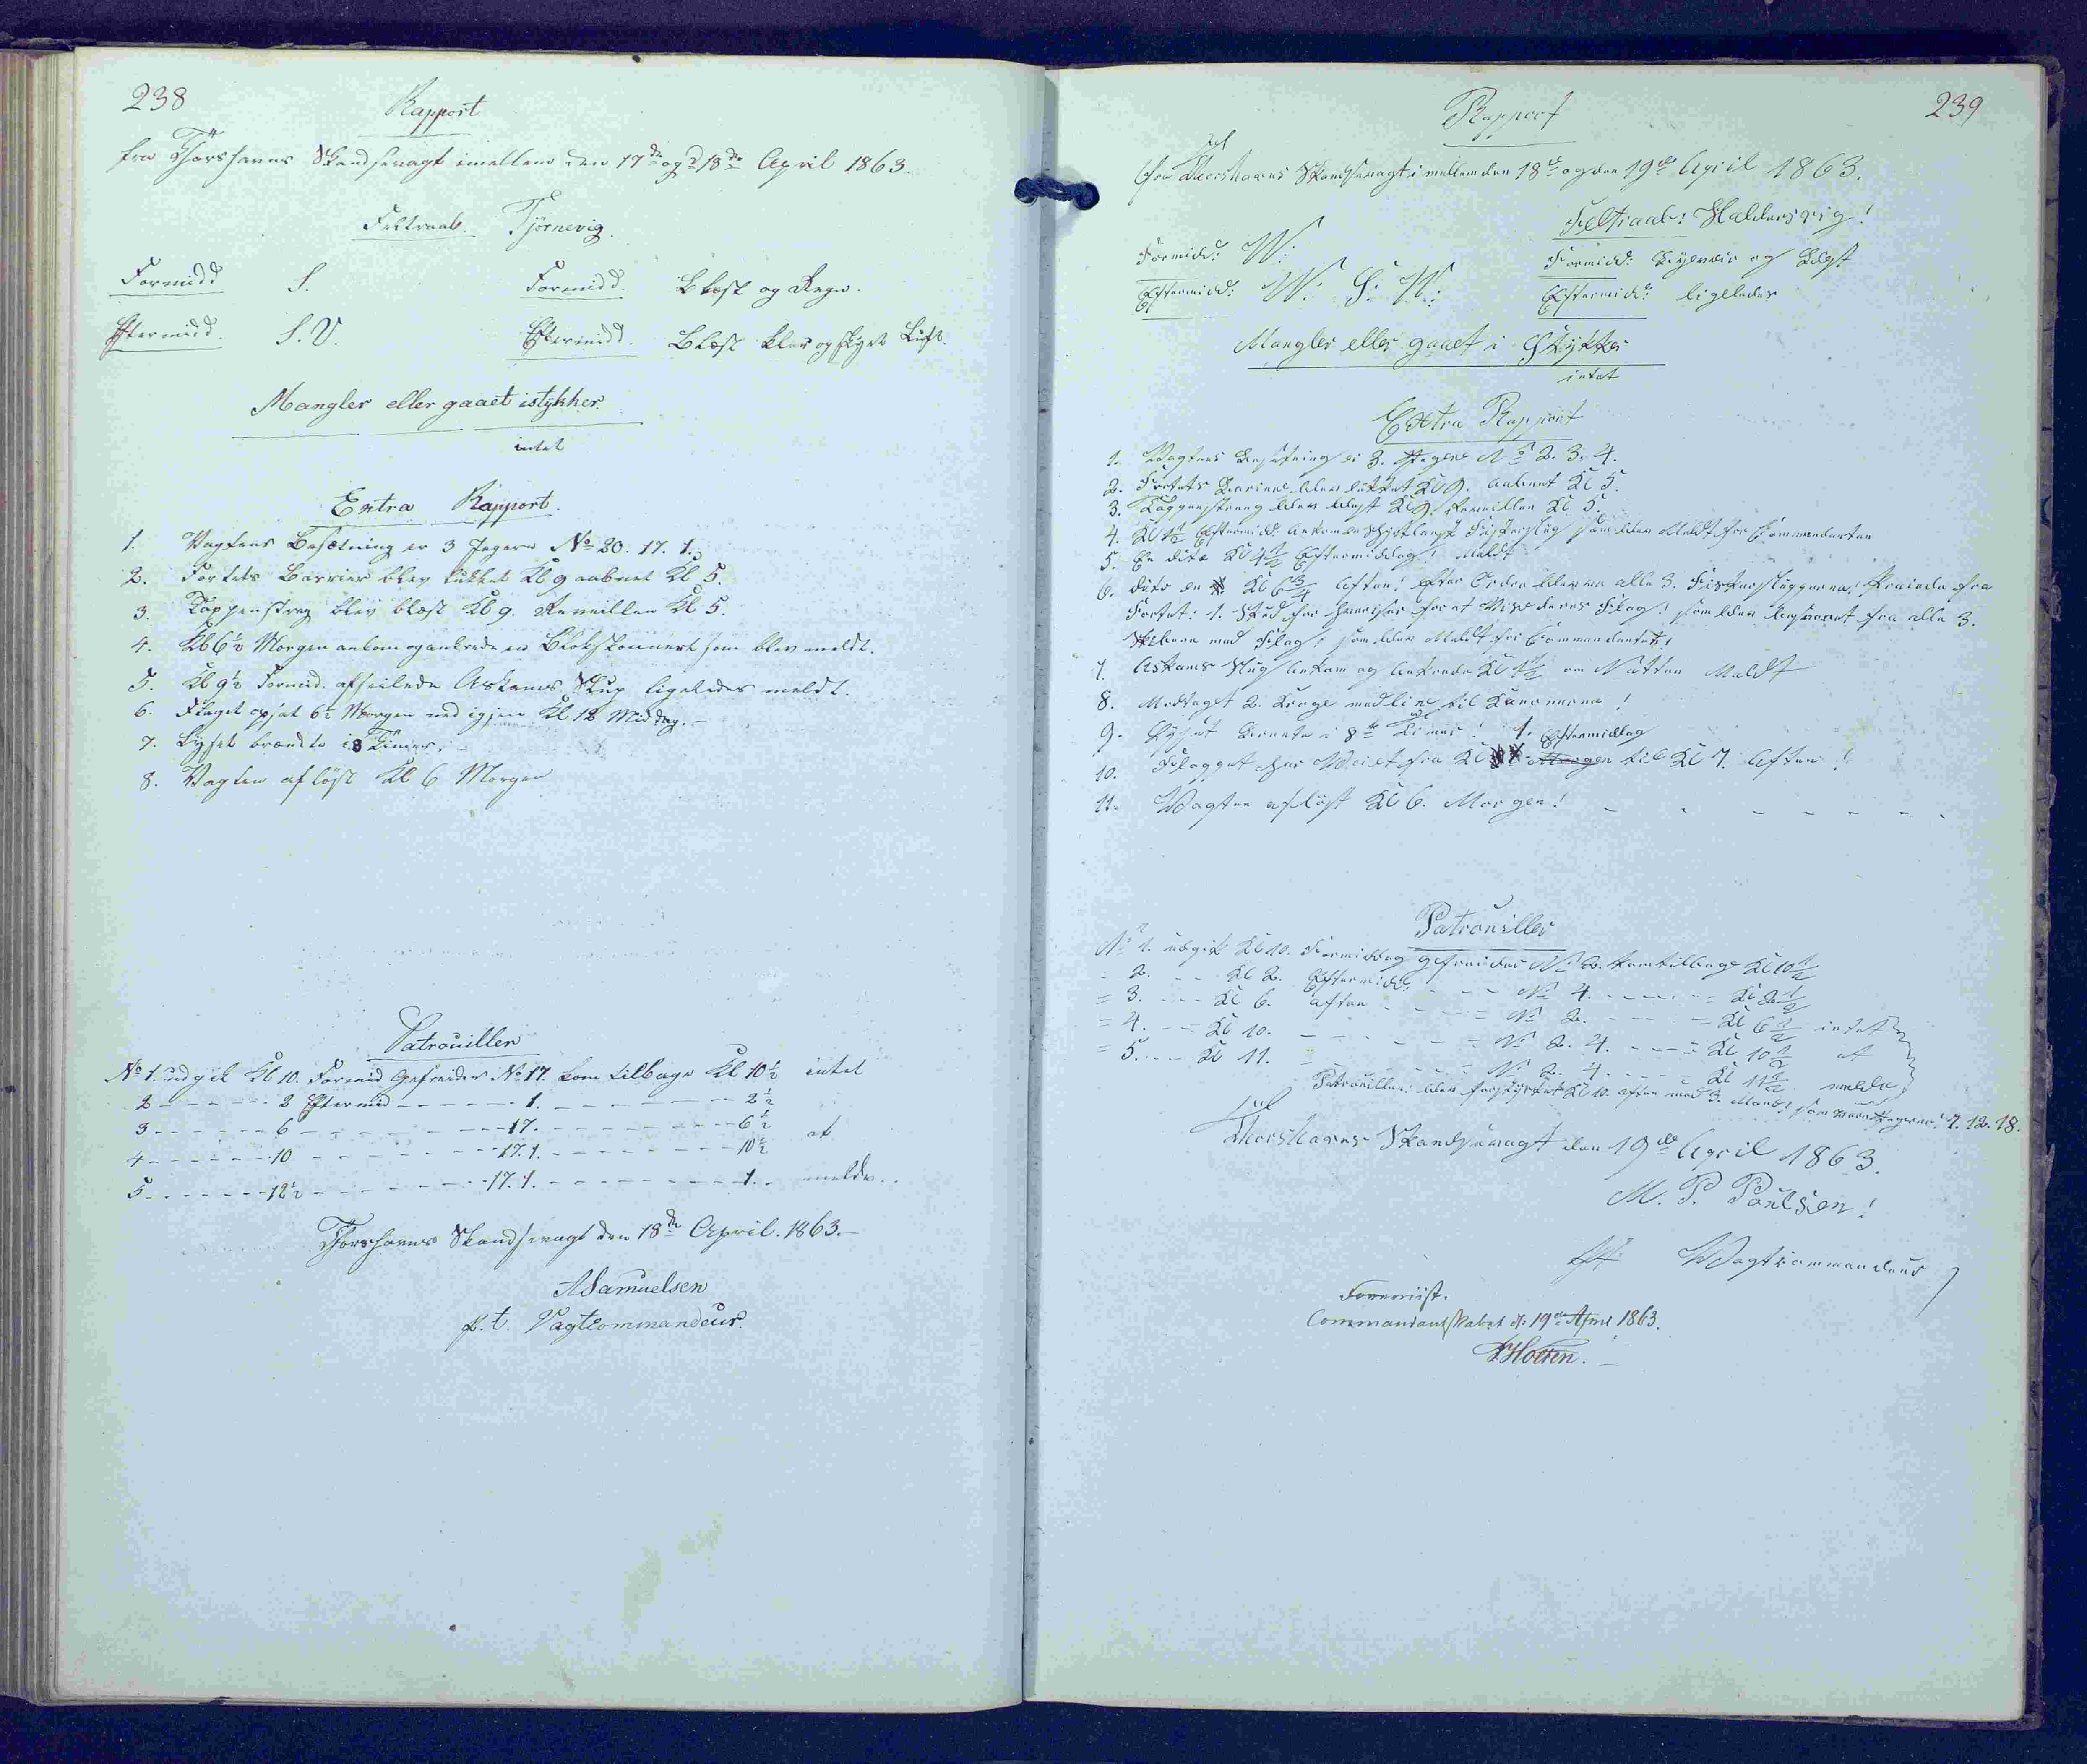 238
Rapport
fra Thorshavns Skandsevagt imellem den 17de og d 18de April 1863.
Feltraab. Tjörnevig.
Formidd S. Formidd. Blæst og Regn.
Eftermidd. S.V. Eftermidd. Blæst klar og skyet Luft.
Mangler eller gaaet istykker.
intet
Extra Rapport.
1. Vagtens Besætning er 3 Jegere No 20. 17. 1.
2. Fortets Barrier blev lukket Kl 9 aabnet Kl 5.
3. Tappenstreg blev blæst Kl 9. Reveillen Kl 5.
4. Kl 6½ Morgen ankom og ankrede en Slokskonnert som blev meldt.
5. Kl 9½ Formid. afseilede Askams Slup ligeledes meldt.
6. Flaget opsat 6½ Morgen ned igjen Kl 12 Middag.
7. Lyset brændte i 8 Timer.
8. Vagten aflöst Kl 6 Morgen
Patrouiller
No 1. udgik Kl 10. Formid Gefreider No 17. kom tilbage Kl 10½ intet
2 - - - 2 Eftermid - - - 1. - - - 2½
3 - - - 6 - - - 17. - - - 6½ at
4 - - - 10 - - - 17.1. - - - 10½
5 - - - 12½ - - - 17.1. - - - 1. - melde.
Thorshavns Skandsevagt den 18de April. 1863.
ASamuelsen
p.t. Vagtcommandeur.
239
Rapport
fra Thorshavns Skandsevagt imellem den 18de og den 19de April 1863.
Feltraab! Haldersvig!
Formidd: W: Formidd:
Eftermidd: W: S: W: Eftermidd: ligeledes
Mangler eller gaaet i Stykker
intet
Extra Rapport
1. Wagtens Besætning er 3. Jegere No 2. 3. 4.
2. Fortets Bariere blev lukket Kl 9. aabnet Kl 5.
3. Tappenstreng blev blæst Kl 9. Reveillen Kl 5.
4. Kl 1½ Eftermidd: ankom en Fiskerslup som blev Meldt for Commandanten
5. En dito Kl 4½ Eftermiddag! Meldt
6. dito en Kl 6¾ Aften! efter Ordre blev alle 3. Fiskerslupperne fra
Fortet: 1. Skud for for at Vise deres Flag! som blev besvaret fra alle 3.
Skibene med Flag! som blev Meldt for Commandantet!
7. Askams Slup ankom og ankrede Kl 1½ om Natten Meldt
8. Modtaget 2. til Kanonerne!
9. Lyset brente i 8te Timer!
10. Flagget har Weiet fra Kl 1. Eftermiddag til Kl 7. Aften!
11. Wagten aflöst Kl 6. Morgen!
Patrouiller
No 1. udgik Kl 10. Formiddag Gefreider No 2. kom tilbage Kl 10½
= 2. - - Kl 2. Eftermidd: - - - No 4. - - - Kl 2½
= 3. - - Kl 6. aften - - - No 2. - - - Kl 6½ intet
= 4. - - Kl 10. - - - No 2. 4. - - - Kl 10½ at
= 5. - - Kl 11. - - - No 2. 4. - - - Kl 11½ melde
Patrouillen blev forstærket Kl 10. aften med 3. Mand! som var Jegerne 7. 12. 18.
Thorshavns Skandsevagt den 19de April 1863.
M. P. Poulsen!
Wagtcommandeur
Foreviist.
Commandantskabet d. 19de April 1863.